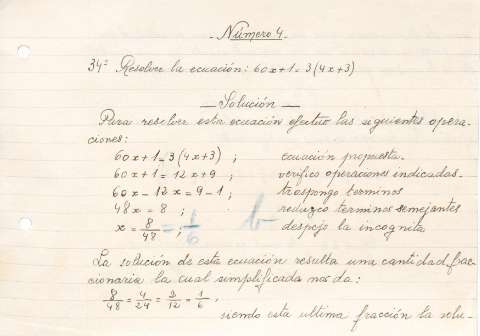 - Número 4 -
34ª Resolver la ecuación: 60x+1=3(4x+3)
— Solución —
Para resolver esta ecuación efectuo las siguientes opera-
ciones:
60x+1=3(4x+3) ; ecuación propuesta.
60x+1=12x+9 ; verifico operaciones indicadas.
60x-12x=9-1 ; traspongo terminos
48x=8 ; reduzco terminos semejantes
x=8/48 ; =1/6 b despejo la incognita
La solución de esta ecuación resulta una cantidad frac-
cionaria la cual simplificada nos da:
8/48 = 4/24 = 2/12 = 1/6 ,
siendo esta ultima fracción la solu-